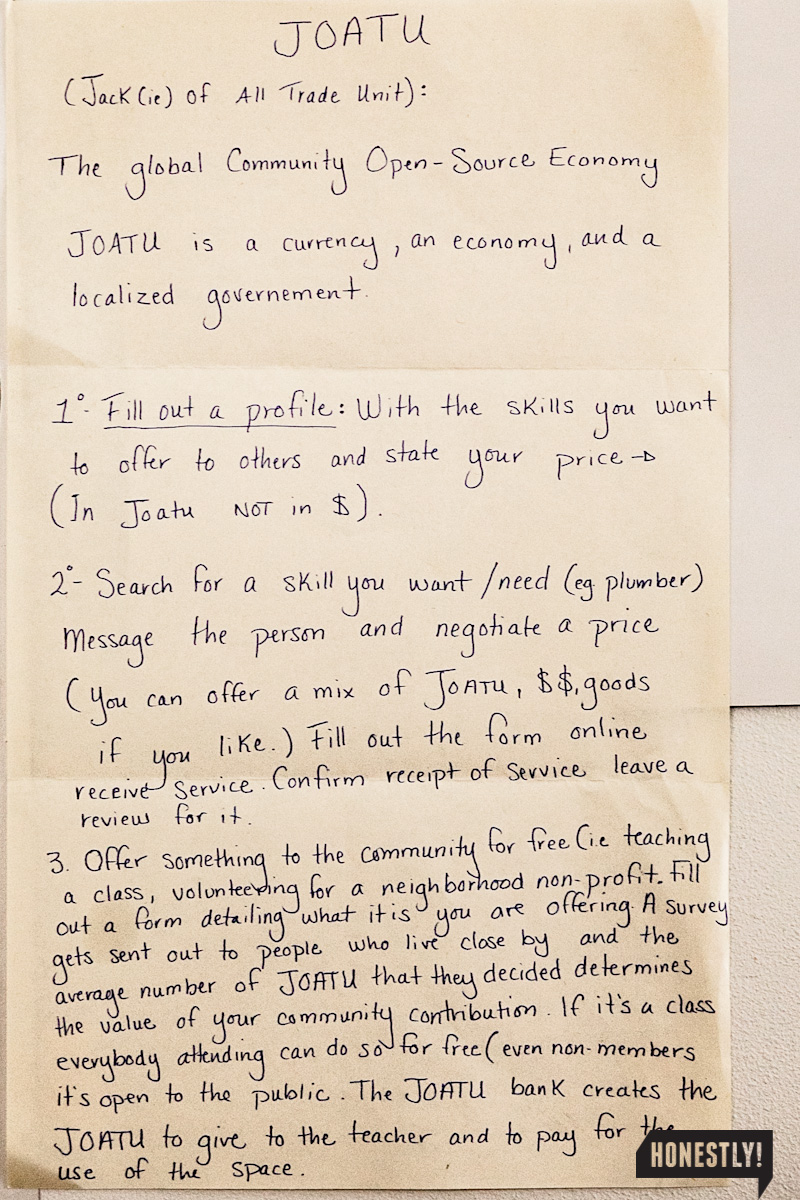 JOATU
(Jack(ie) of All Trade Unit):
The global Community Open-Source Economy
JOATU is a currency, an economy, and a
localized governement.
1°- Fill out a profile: With the skills you want
to offer to others and state your price→
(In Joatu NOT in $).
2°- Search for a skill you want/need (eg. plumber)
Message the person and negotiate a price
(You can offer a mix of JOATU, $$, goods
if you like.) Fill out the form online
receive service. Confirm receipt of service leave a
review for it.
3. Offer something to the community for free (i.e teaching
a class, volunteering for a neighborhood non-profit. Fill
out a form detailing what it is you are offering. A survey
gets sent out to people who live close by and the
average number of JOATU that they decided determines
the value of your community contribution. If it's a class
everybody attending can do so for free (even non-members
it's open to the public. The JOATU bank creates the
JOATU to give to the teacher and to pay for the
use of the space.
HONESTLY!